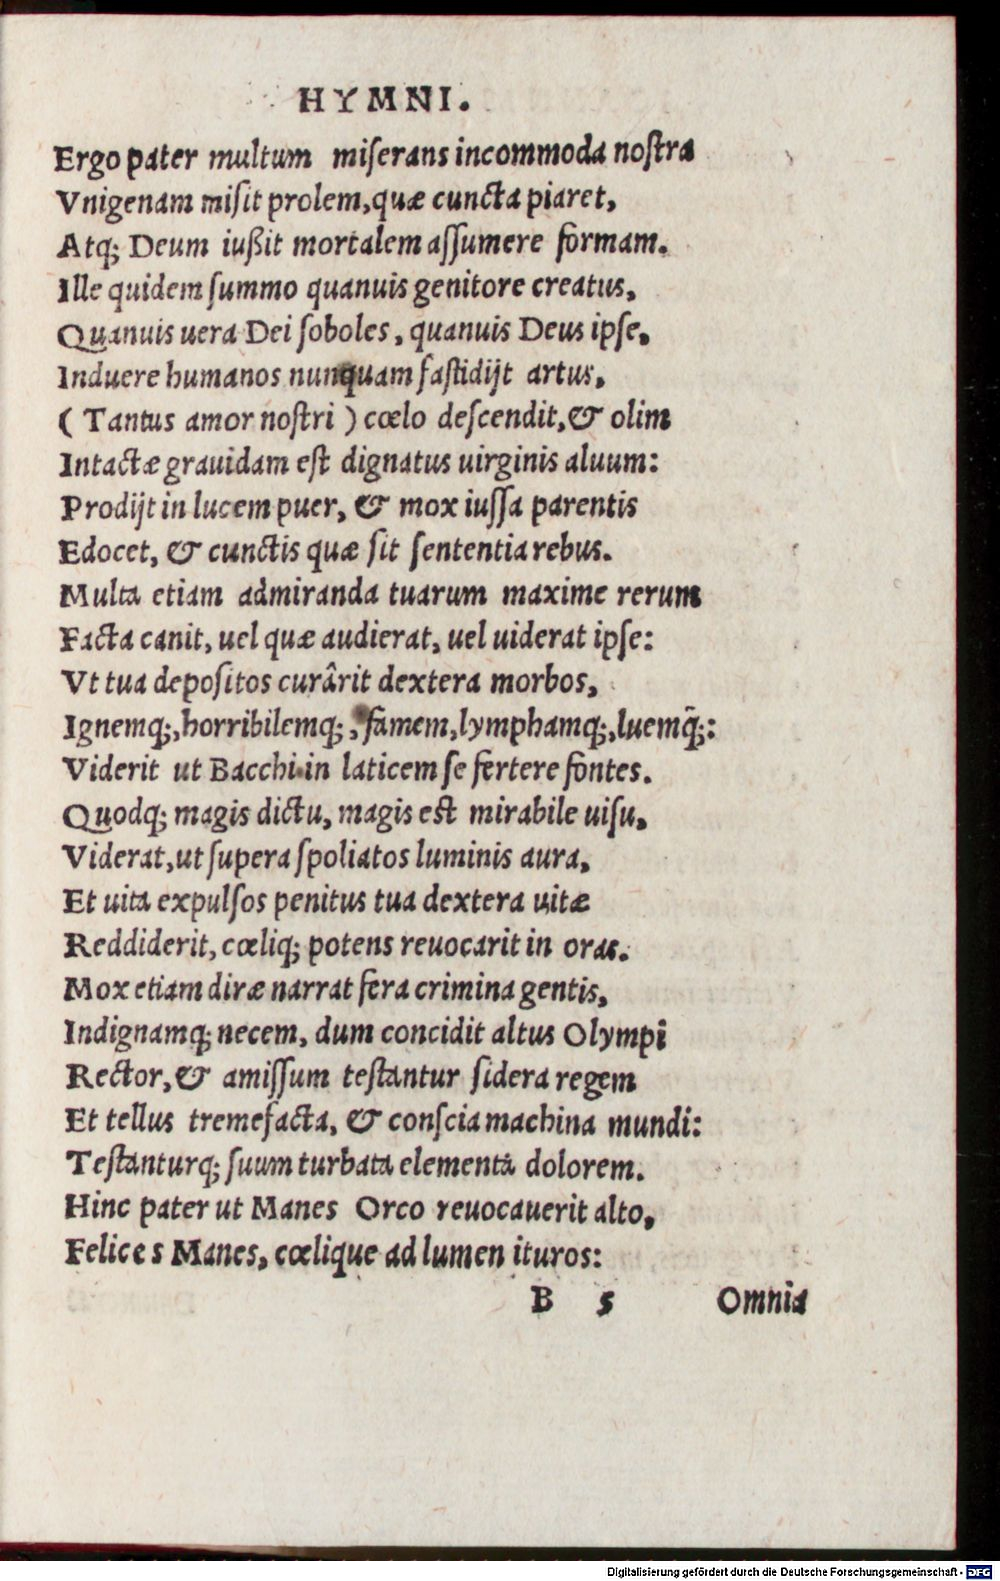 HYMNI.
Ergo pater multum miſerans incommoda noſtra
Vnigenam miſit prolem, quæ cuncta piaret,
Atq; Deum iußit mortalem aſſumere formam.
Ille quidem ſummo quanuis genitore creatus,
Quanuis uera Dei ſoboles, quanuis Deus ipſe,
Induere humanos nunquam faſtidijt artus,
(Tantus amor noſtri) cœlo deſcendit, & olim
Intactæ grauidam eſt dignatus uirginis aluum:
Prodijt in lucem puer, & mox iuſſa parentis
Edocet, & cunctis quæ ſit ſententia rebus.
Multa etiam admiranda tuarum maxime rerum
Facta canit, uel quæ audierat, uel uiderat ipſe:
Vt tua depoſitos curârit dextera morbos,
Ignemq;, horribilemq;, famem, lymphamq;, luemq̃;:
Viderit ut Bacchi in laticem ſe fertere fontes.
Quodq; magis dictu, magis eſt mirabile uiſu,
Viderat, ut ſupera ſpoliatos luminis aura,
Et uita expulſos penitus tua dextera uitæ
Reddiderit, cœliq; potens reuocarit in oras.
Mox etiam diræ narrat fera crimina gentis,
Indignamq; necem, dum concidit altus Olympi
Rector, & amiſſum teſtantur ſidera regem
Et tellus tremefacta, & conſcia machina mundi:
Teſtanturq; ſuum turbata elementa dolorem.
Hinc pater ut Manes Orco reuocauerit alto,
Felices Manes, cœlique ad lumen ituros:
B 5 Omnia
Digitalisierung gefördert durch die Deutsche Forschungsgemeinschaft - DFG